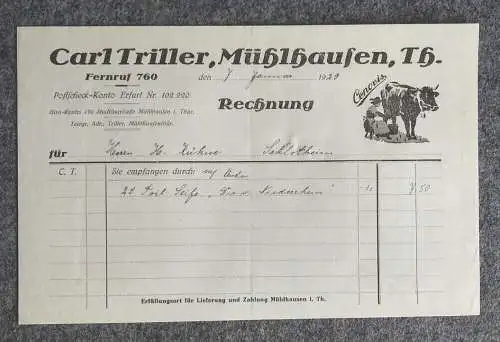 Carl Triller, Mühlhausen, Th.
Fernruf 760
den 7 Januar 19
Postscheck-Konto Erfurt Nr. 102 220
Giro-Konto Stadtsparkasse Mühlhausen i. Thür.
Telegr. Adr.: Triller, Mühlhausenthür.
Rechnung
Cenovis
für Herrn H. Kühne Schlotheim
C. T. Sie empfangen durch Auto
Seife Niederrhein 7.50
Erfüllungsort für Lieferung und Zahlung Mühlhausen i. Th.